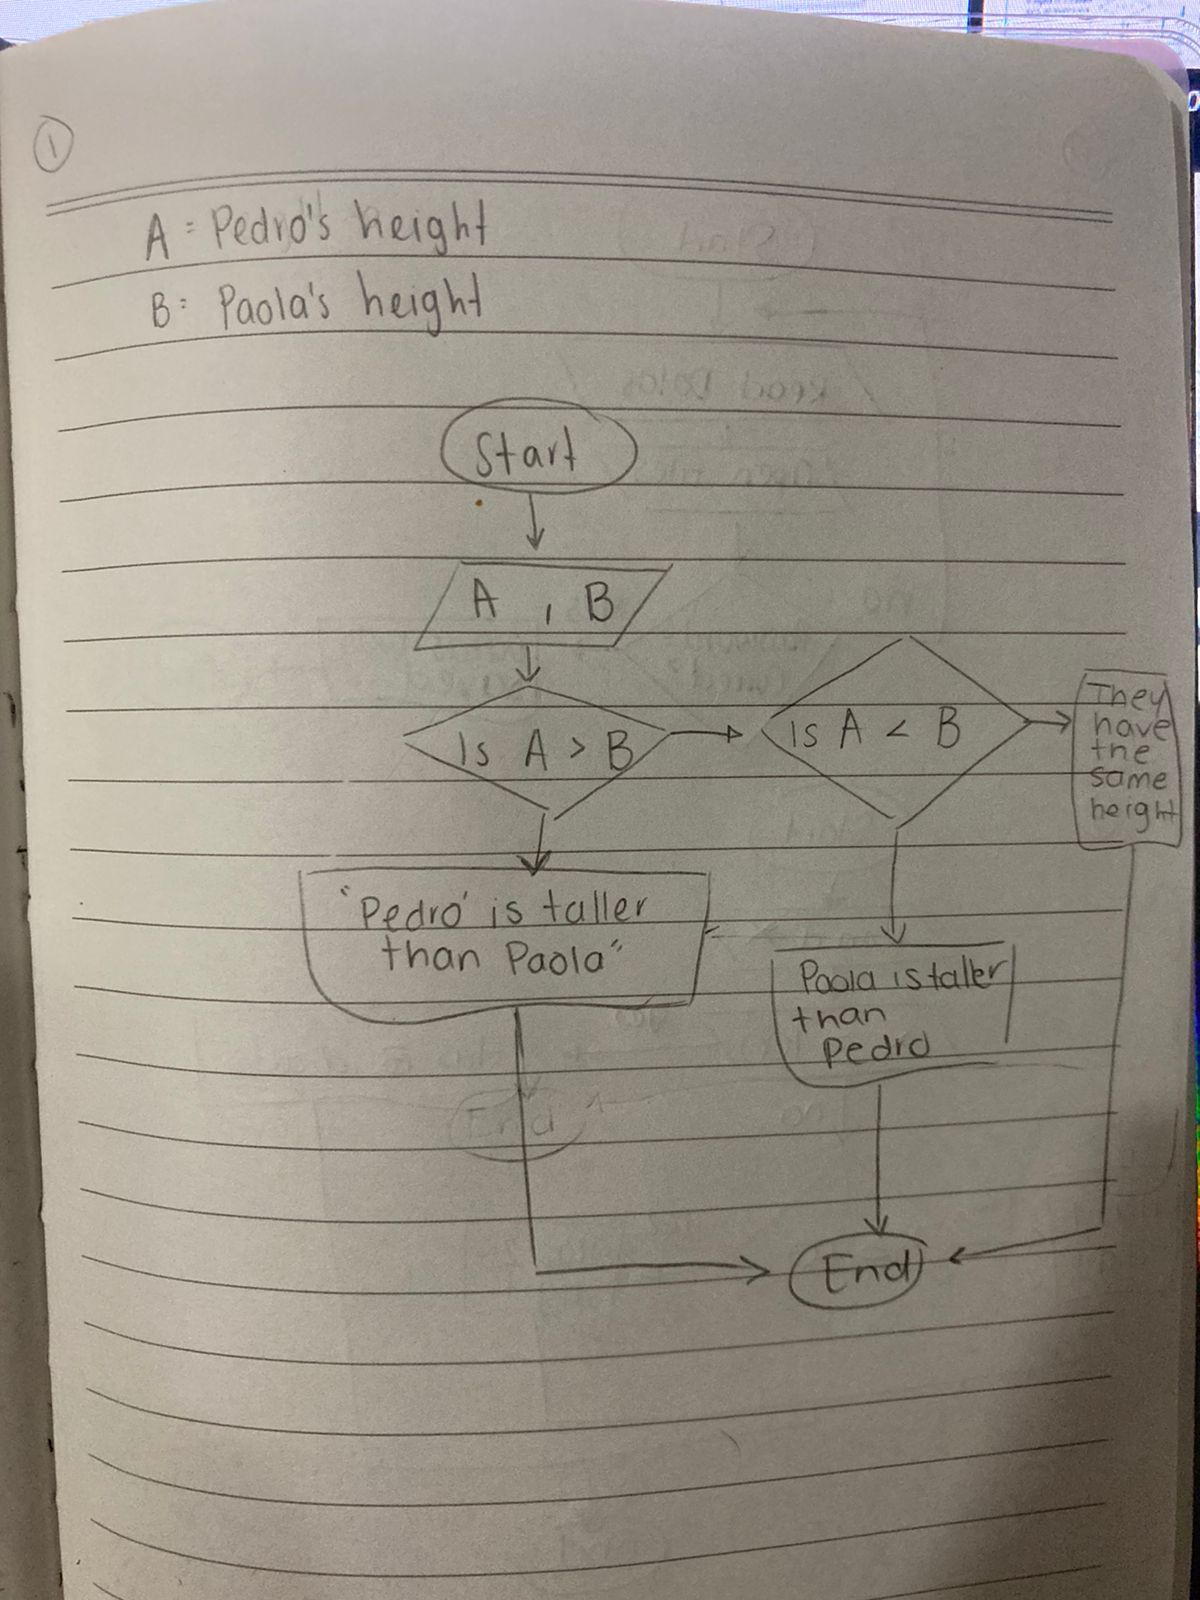 1
A = Pedro's height
B = Paola's height
Start
A , B
Is A > B
Is A < B
They
have
the
same
height
"Pedro' is taller
than Paola"
Paola is taller
than
Pedro
End
End